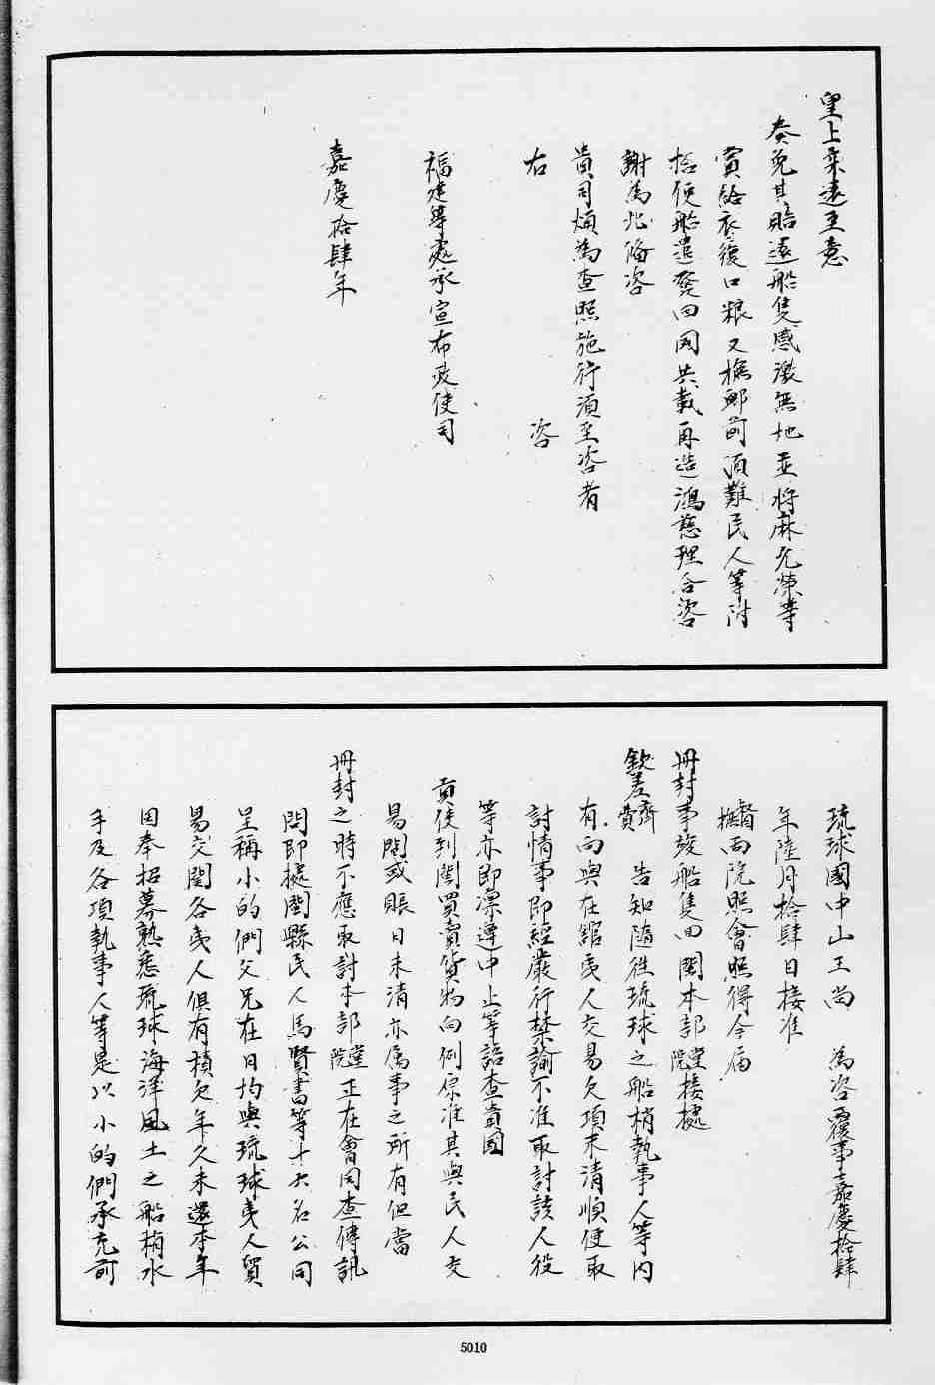 皇上柔遠至意
奏免其賠還船隻感激無地並將麻允榮等
賞給衣復口粮又撫郵前項難民人等附
搭便船遣發回國共戴再造鴻慈理合咨
謝為此俻咨
貴司煩為查照施行須至咨者
右　　　　咨
福建等處承宣布政使司
嘉慶拾肆年
琉球國中山王尚　為咨覆事嘉慶拾肆
年陸月拾肆日接准
督撫兩院照會照得今届
冊封事竣船隻回閩本部堂院接據
欽差齊費　告知隨徃琉球之船梢執事人等内
有向與在舘夷人交易欠項未清順便取
討情事即經嚴行禁諭不准取討該人役
等亦即凛遵中止等語查貴國
貢使到閩買賣貨物向例原准其與民人交
易閩或賬目未清亦属事之所有但當
冊封之時不應取討本部堂院正在會同查傳訊
問即據閩縣民人馬賢書等十六名公同
呈稱小的們父兄在日均與琉球夷人貿
易交関各夷人俱有積欠年久未還本年
因奉招募熟悉琉球海洋風土之船梢水
手及各項執事人等是以小的們承充前
5010